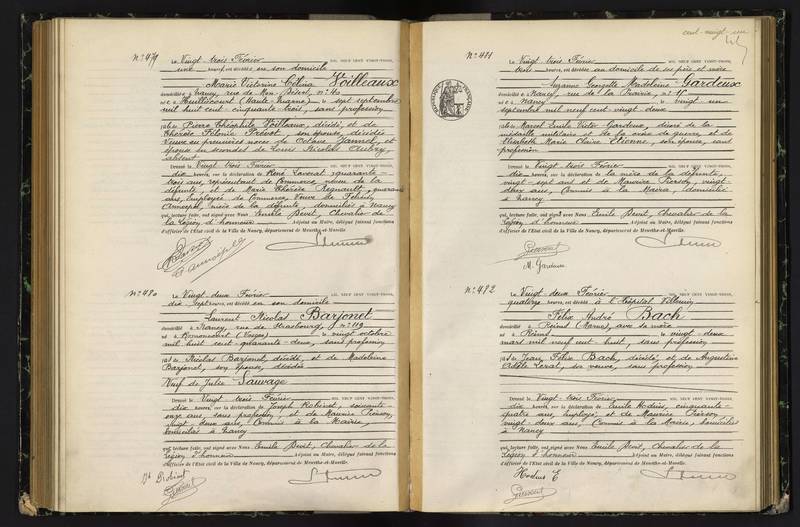 cent-vingt-un
N° 479
Le Vingt-trois Février MIL NEUF CENT VINGT-TROIS,
une heures, est décédée en son domicile
Marie Victorine Célina Voilleaux
domiciliée à Nancy, rue de Mon-Désert, n° 40
née à (Haute-Marne), le sept septembre
mil huit cent cinquante-trois, sans profession
fille de Pierre Théophile Voilleaux, décédé, et de
Thérèse Filonie Prévot son épouse, décédée
Veuve en premières noces de Octave Jannot, et
épouse en secondes de Louis Nicolas Aubry,
absent
Dressé le Vingt-trois Février MIL NEUF CENT VINGT-TROIS,
dix heures, sur la déclaration de René quarante-
trois ans, représentant de Commerce, neveu de la
défunte, et de Marie Thérèse Regnault, quarante
ans, Employée de Commerce, Veuve de
nièce de la défunte, domiciliés à Nancy
qui, lecture faite, ont signé avec Nous Emile Devit, Chevalier de
la Légion d'honneur Adjoint au Maire, délégué faisant fonctions
d'officier de l'État civil de la Ville de Nancy, département de Meurthe-et-Moselle.
N° 480
Le Vingt-deux Février MIL NEUF CENT VINGT-TROIS,
dix-sept heures, est décédé en son domicile
Laurent Nicolas Barjonet
domicilié à Nancy, rue de Strasbourg, n° 119
né à Romoncourt (Vosges) le vingt octobre
mil huit cent quarante-deux, sans profession
fils de Nicolas Barjonet, décédé, et de Madeleine
Barjonet, son épouse, décédée
Veuf de Julie Sauvage
Dressé le Vingt-trois Février MIL NEUF CENT VINGT-TROIS,
dix heures, sur la déclaration de Joseph soixante-
onze ans, sans profession, et de Maurice Pierson,
vingt-deux ans, Commis à la Mairie,
domiciliés à Nancy
qui, lecture faite, ont signé avec Nous Emile Devit, Chevalier de la
Légion d'honneur Adjoint au Maire, délégué faisant fonctions
d'officier de l'État civil de la Ville de Nancy, département de Meurthe-et-Moselle.
N° 481
Le Vingt-trois Février MIL NEUF CENT VINGT-TROIS,
trois heures, est décédée au domicile de ses père et mère
Suzanne Georgette Madeleine Gardeux
domiciliée à Nancy, rue de la Prairie, n°
née à Nancy le vingt-un
septembre mil neuf cent vingt-deux
fille de Marcel Emile Victor Gardeux, décoré de la
médaille militaire et de la croix de guerre, et de
Elisabeth Marie Claire Etienne, son épouse, sans
profession
Dressé le Vingt-trois Février MIL NEUF CENT VINGT-TROIS,
dix heures, sur la déclaration de la mère de la défunte,
vingt-sept ans et de Maurice Pierson, vingt-
deux ans, Commis à la Mairie, domiciliés
à Nancy
qui, lecture faite, ont signé avec Nous Emile Devit, Chevalier de la
Légion d'honneur Adjoint au Maire, délégué faisant fonctions
d'officier de l'État civil de la Ville de Nancy, département de Meurthe-et-Moselle.
M. Gardeux
N° 482
Le Vingt-deux Février MIL NEUF CENT VINGT-TROIS,
quatorze heures, est décédé à l'Hôpital Villemin
Félix André Bach
domicilié à Reims (Marne), avec sa mère
né à Reims le vingt-deux
mars mil neuf cent huit, sans profession
fils de Jean Félix Bach, décédé, et de Augustine
Adèle sa veuve, sans profession
Dressé le Vingt-trois Février MIL NEUF CENT VINGT-TROIS,
dix heures, sur la déclaration de Emile Hodus, cinquante-
quatre ans, employé, et de Maurice Pierson,
vingt-deux ans, Commis à la Mairie, domiciliés
à Nancy
qui, lecture faite, ont signé avec Nous Emile Devit, Chevalier de la
Légion d'honneur Adjoint au Maire, délégué faisant fonctions
d'officier de l'État civil de la Ville de Nancy, département de Meurthe-et-Moselle.
Hodus E